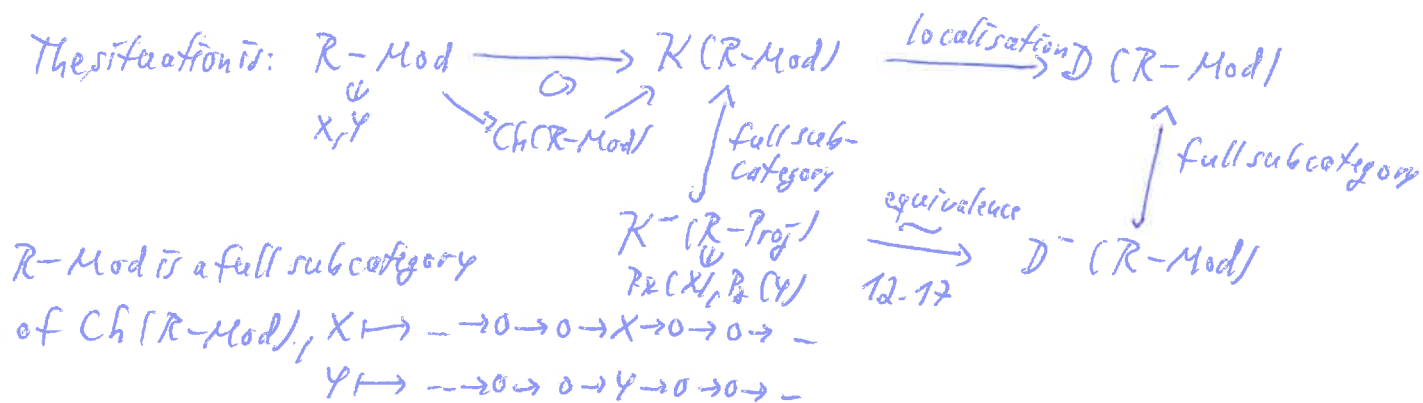 The situation is: R-Mod ⟶ K(R-Mod) localisation ⟶ D(R-Mod)
X, Y Ch(R-Mod) full sub- full subcategory
category
K⁻(R-Proj) equivalence ∼ ⟶ D⁻(R-Mod)
R-Mod is a full subcategory P•(X), P•(Y) 12.17
of Ch(R-Mod), X ↦ … → 0 → 0 → X → 0 → 0 → …
Y ↦ … → 0 → 0 → Y → 0 → 0 → …